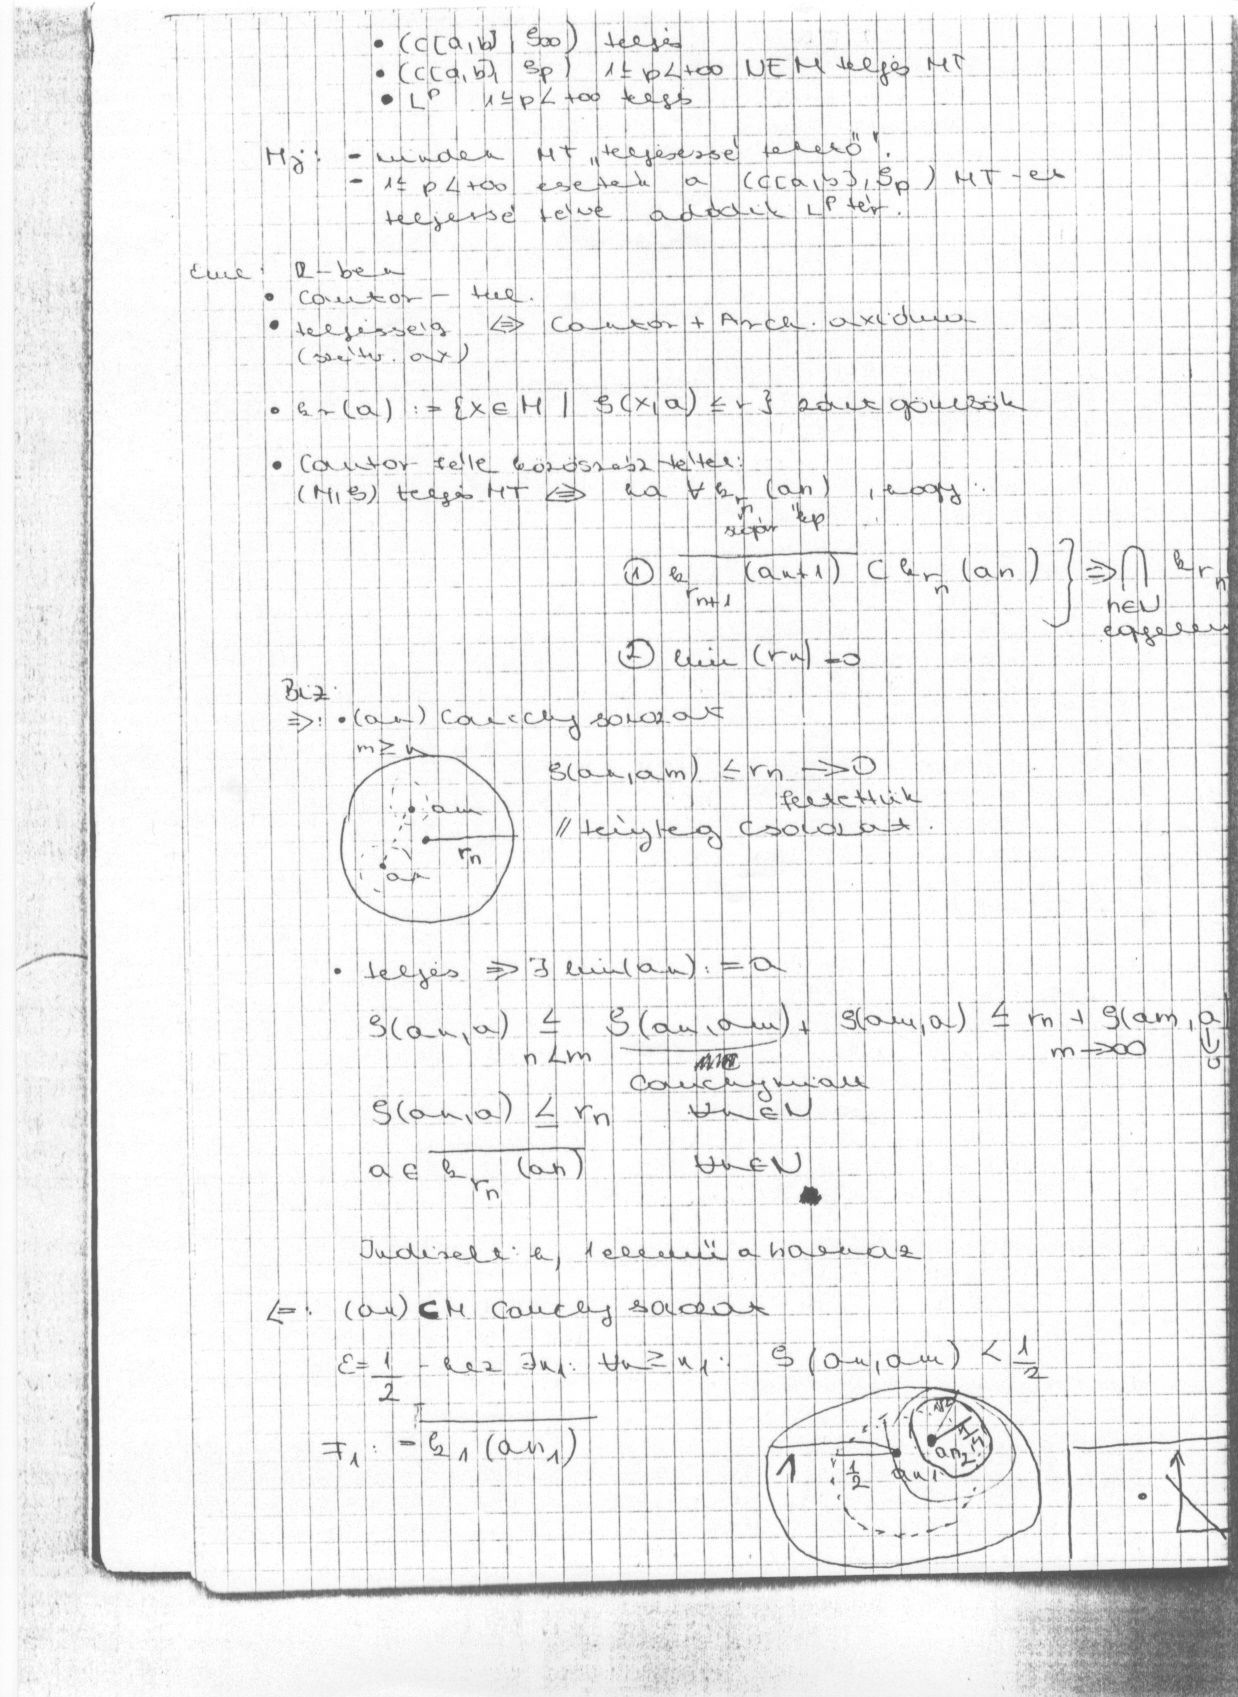 • (C[a,b], ρ∞) teljes
• (C[a,b], ρp) 1≤p<+∞ NEM teljes MT
• L^p 1≤p<+∞ teljes
Mj: - minden MT „teljessé tehető".
- 1≤p<+∞ esetén a (C[a,b], ρp) MT-et
teljessé téve adódik L^p tér.
Eml: R-ben
• Cantor-tul.
• teljesség ⇔ Cantor + Arch. axióma
(szétv. ax)
• k_r(a) := {x∈M | ρ(x,a) ≤ r} zárt gömbök
• Cantor féle közösrész-tétel:
(M,ρ) teljes MT ⇔ ha ∀ k_{r_n}(an), hogy:
sugár kp
① \overline{k_{r_{n+1}}(an+1)} ⊂ k_{r_n}(an) } ⇒ ⋂ k_{r_n}
n∈N
② lim (rn) = 0
Biz:
⇒: • (an) Cauchy sorozat
m ≥ n
ρ(an,am) ≤ rn → 0
feltettük
am
// tényleg Csorozat.
rn
an
• teljes ⇒ ∃ lim(an) := a
ρ(an,a) ≤ ρ(an,am) + ρ(am,a) ≤ rn + ρ(am,a
n<m m→∞
Cauchy miatt
ρ(an,a) ≤ rn ∀n∈N
a ∈ \overline{k_{r_n}(an)} ∀n∈N
Indirekt: h, 1 elemű a halmaz
⇐: (an) ⊂ M Cauchy sorozat
ε=1/2 - hez ∃n1: ∀n≥n1: ρ(an,am) < 1/2
F1 := \overline{k1(an1)}
1 1/2 an1 an2 1/4